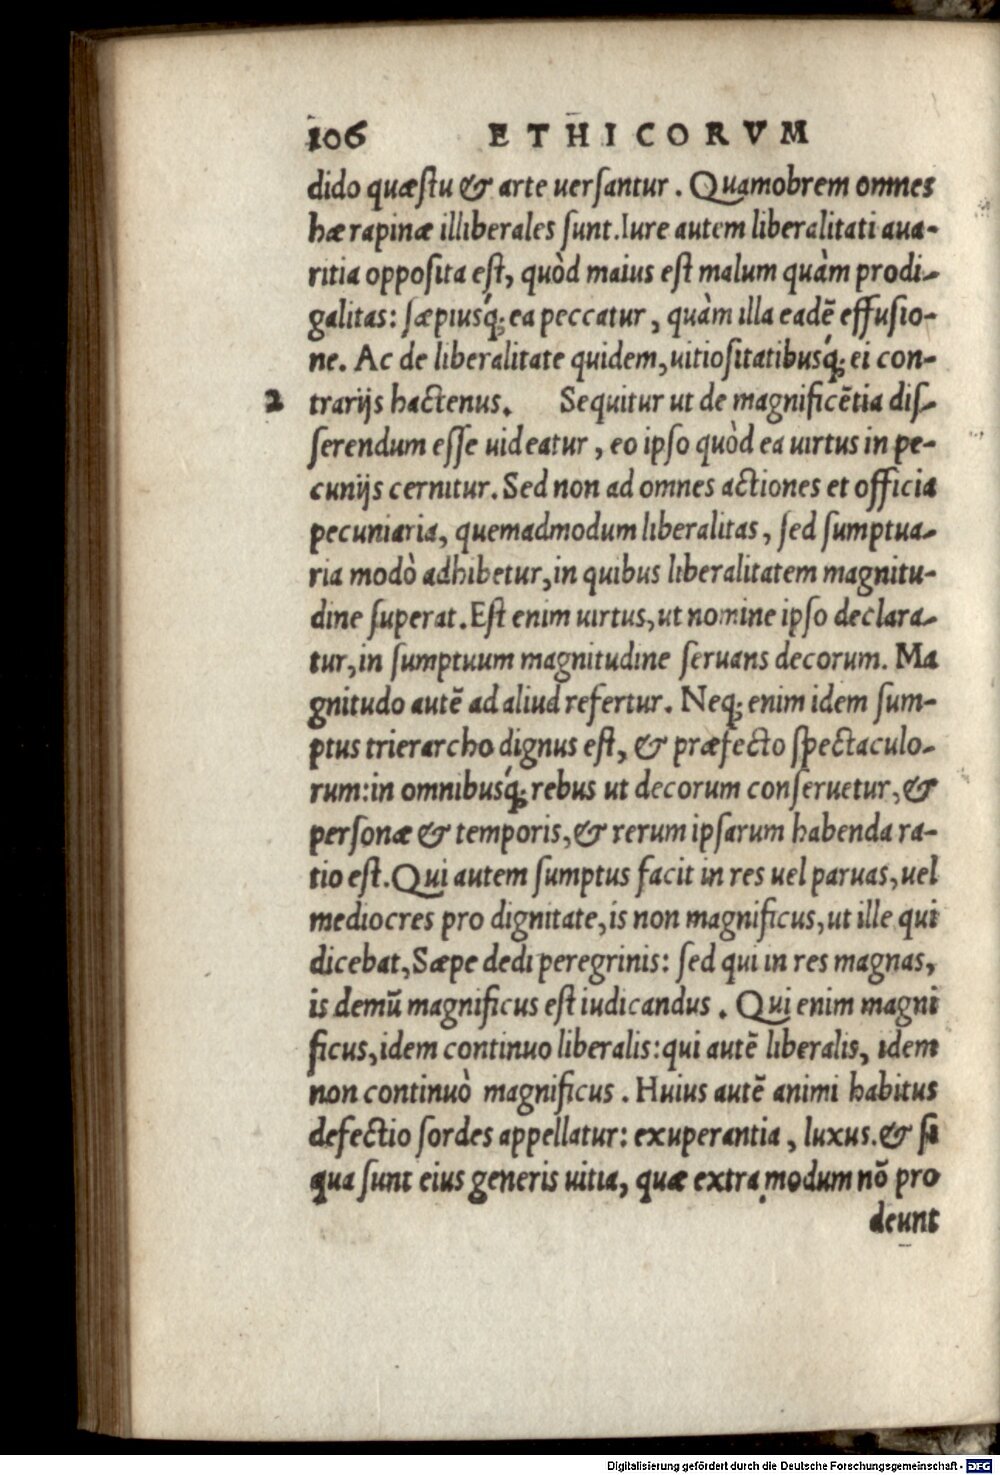 106 ETHICORVM
dido quæstu & arte uersantur. Quamobrem omnes
hæ rapinæ illiberales sunt. Iure autem liberalitati aua-
ritia opposita est, quòd maius est malum quàm prodi-
galitas: sæpiusq́; ea peccatur, quàm illa eadẽ effusio-
ne. Ac de liberalitate quidem, uitiositatibusq́; ei con-
2 trarijs hactenus. Sequitur ut de magnificẽtia dis-
serendum esse uideatur, eo ipso quòd ea uirtus in pe-
cunijs cernitur. Sed non ad omnes actiones et officia
pecuniaria, quemadmodum liberalitas, sed sumptua-
ria modò adhibetur, in quibus liberalitatem magnitu-
dine superat. Est enim uirtus, ut nomine ipso declara-
tur, in sumptuum magnitudine seruans decorum. Ma
gnitudo autẽ ad aliud refertur. Neq; enim idem sum-
ptus trierarcho dignus est, & præfecto spectaculo-
rum: in omnibusq́; rebus ut decorum conseruetur, &
personæ & temporis, & rerum ipsarum habenda ra-
tio est. Qui autem sumptus facit in res uel paruas, uel
mediocres pro dignitate, is non magnificus, ut ille qui
dicebat, Sæpe dedi peregrinis: sed qui in res magnas,
is demũ magnificus est iudicandus. Qui enim magni
ficus, idem continuo liberalis: qui autẽ liberalis, idem
non continuò magnificus. Huius autẽ animi habitus
defectio sordes appellatur: exuperantia, luxus. & si
qua sunt eius generis uitia, quæ extra modum nõ pro
deunt
Digitalisierung gefördert durch die Deutsche Forschungsgemeinschaft - DFG